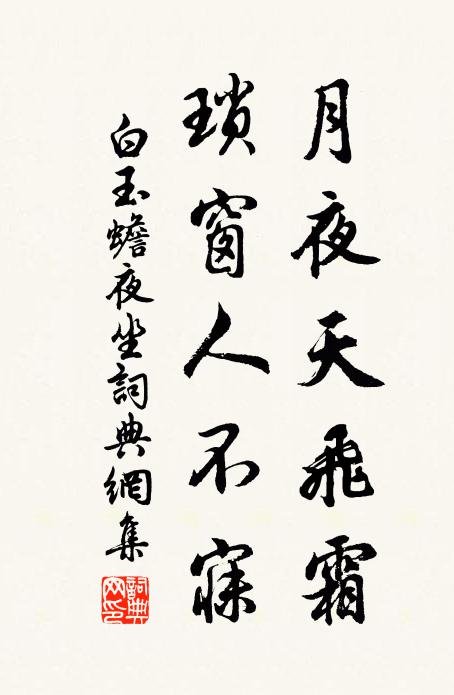 月夜天飛霜
瑣窗人不寐
白玉蟾夜坐詞典網集
詞典
网印